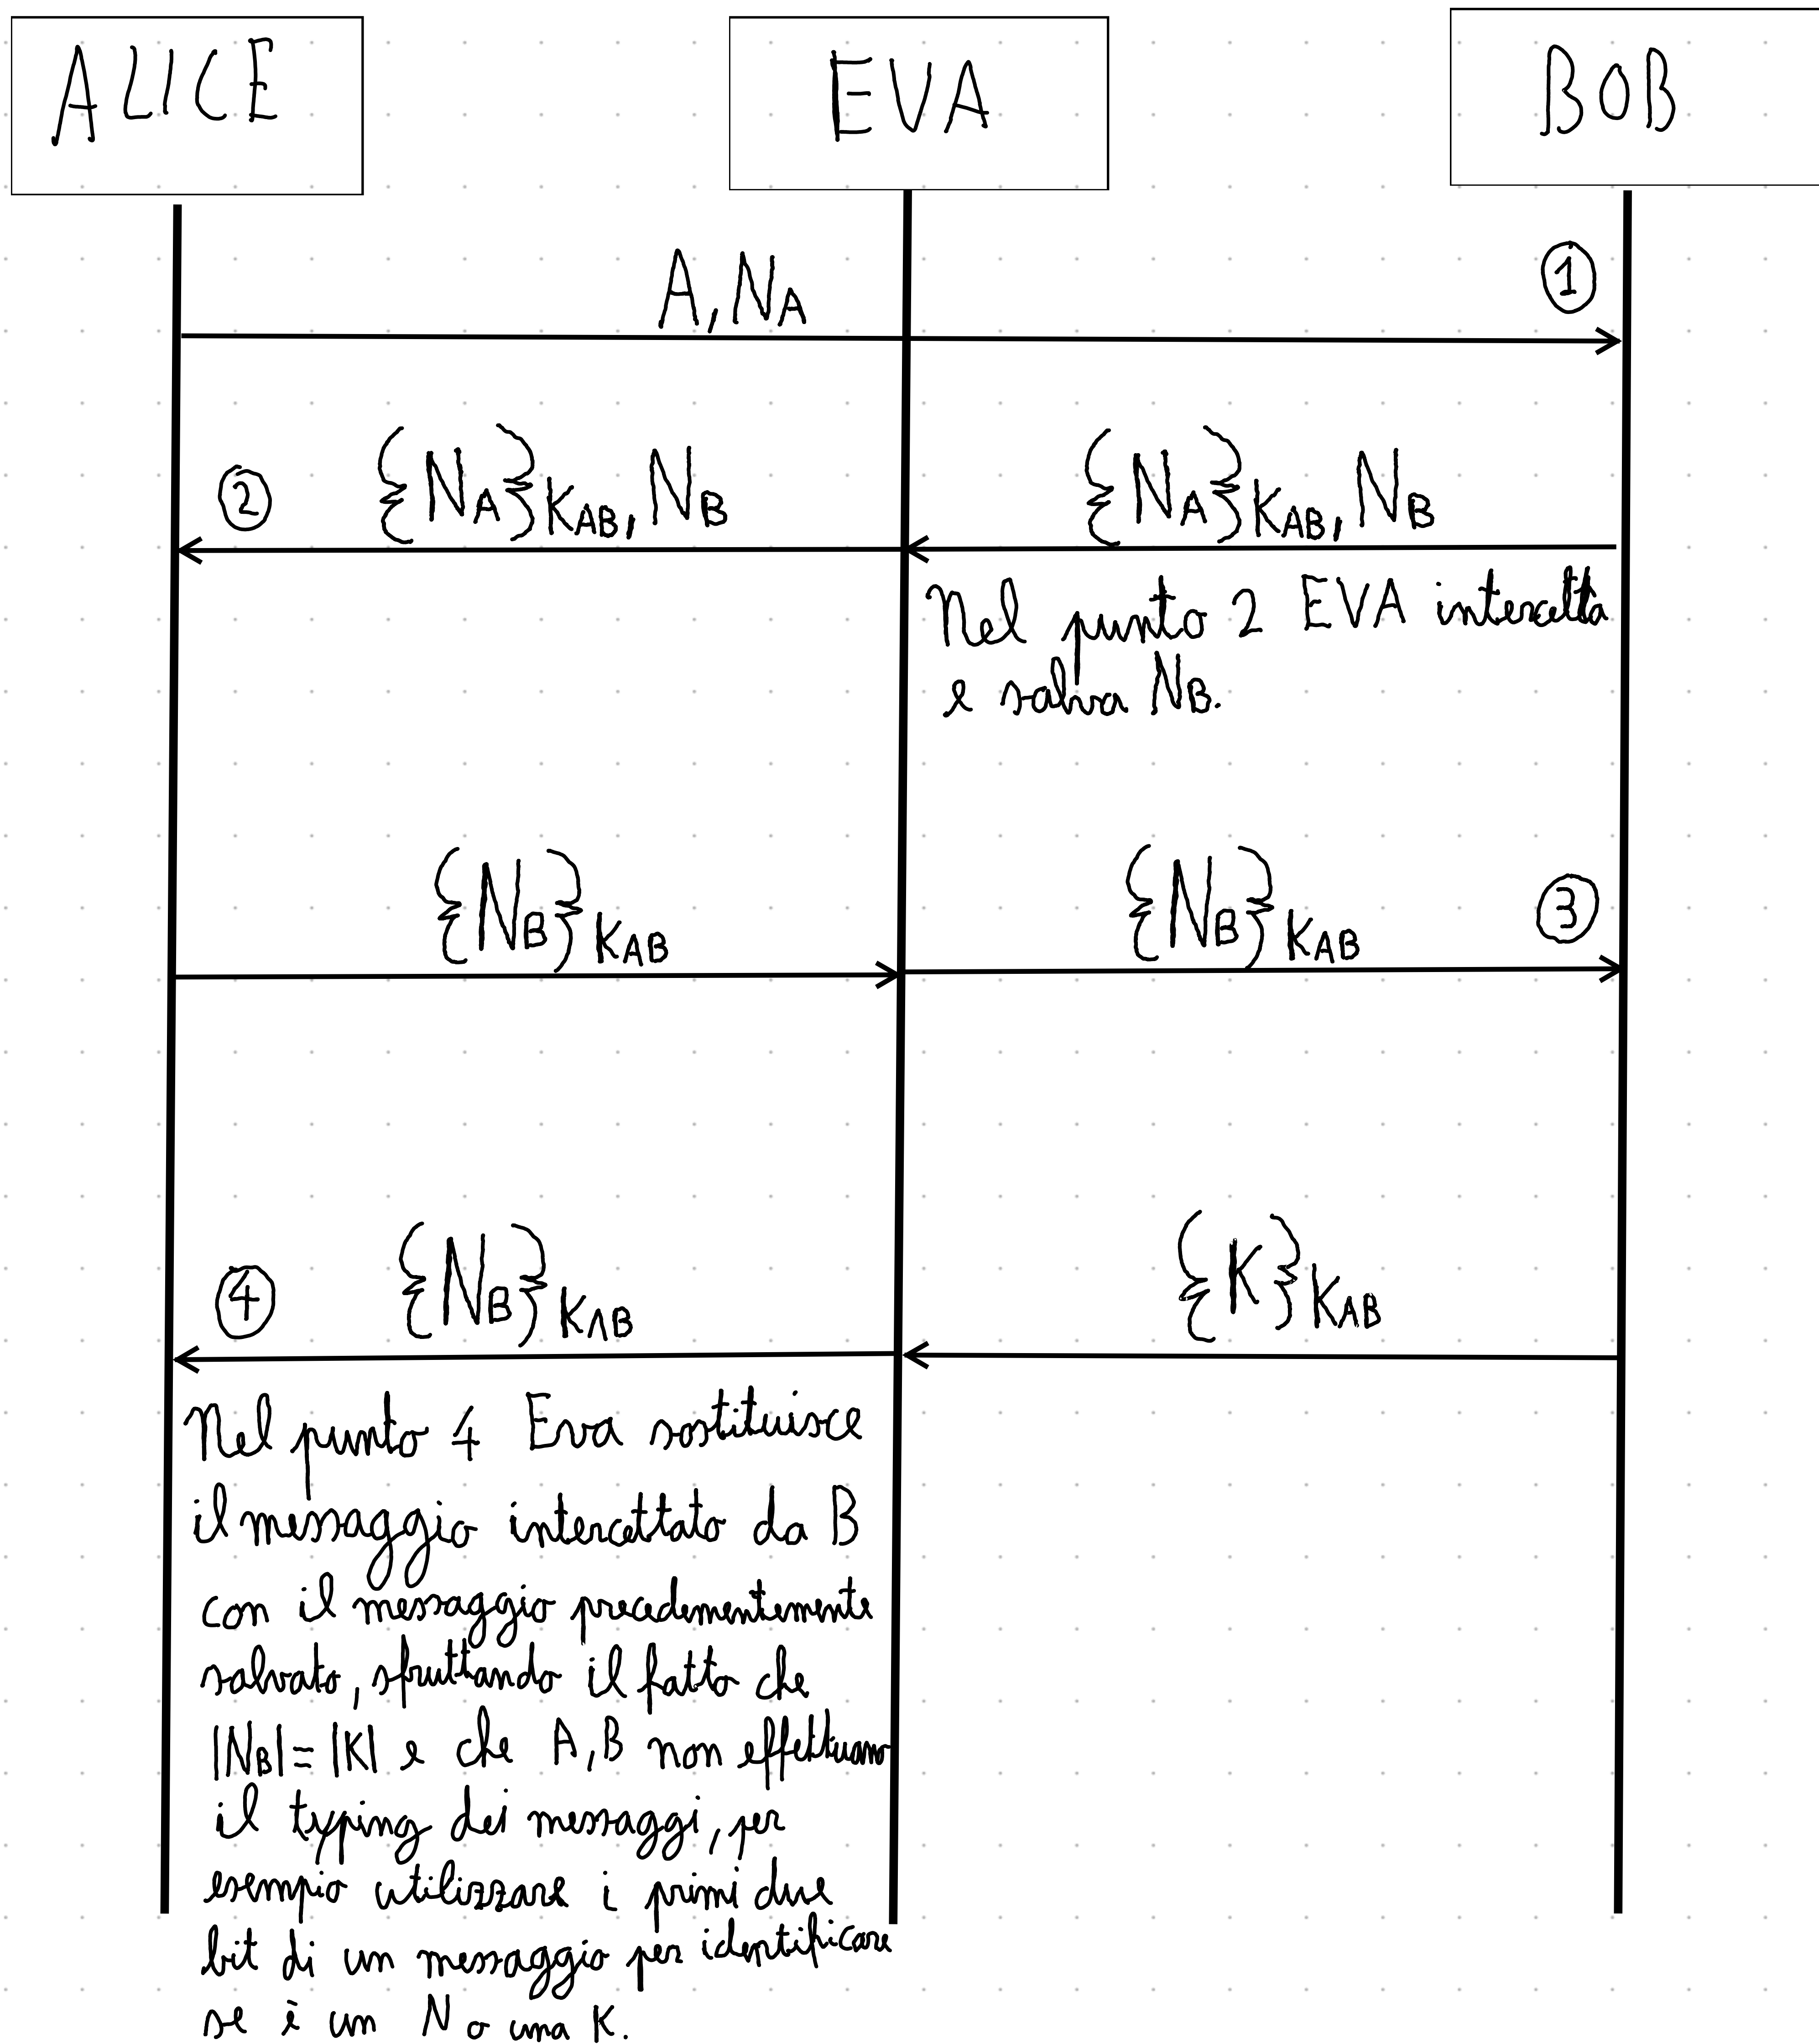 ALICE
EVA
BOB
A, NA
1
2
{NA}KAB, NB
{NA}KAB, NB
Nel punto 2 EVA intercetta
e salva NB.
{NB}KAB
{NB}KAB
3
4
{NB}KAB
{K}KAB
Nel punto 4 Eva sostituisce
il messaggio intercettato da B
con il messaggio precedentemente
salvato, sfruttando il fatto che
|NB|=|K| e che A,B non effettuano
il typing dei messaggi, per
esempio utilizzare i primi due
bit di un messaggio per identificare
se è un N o una K.